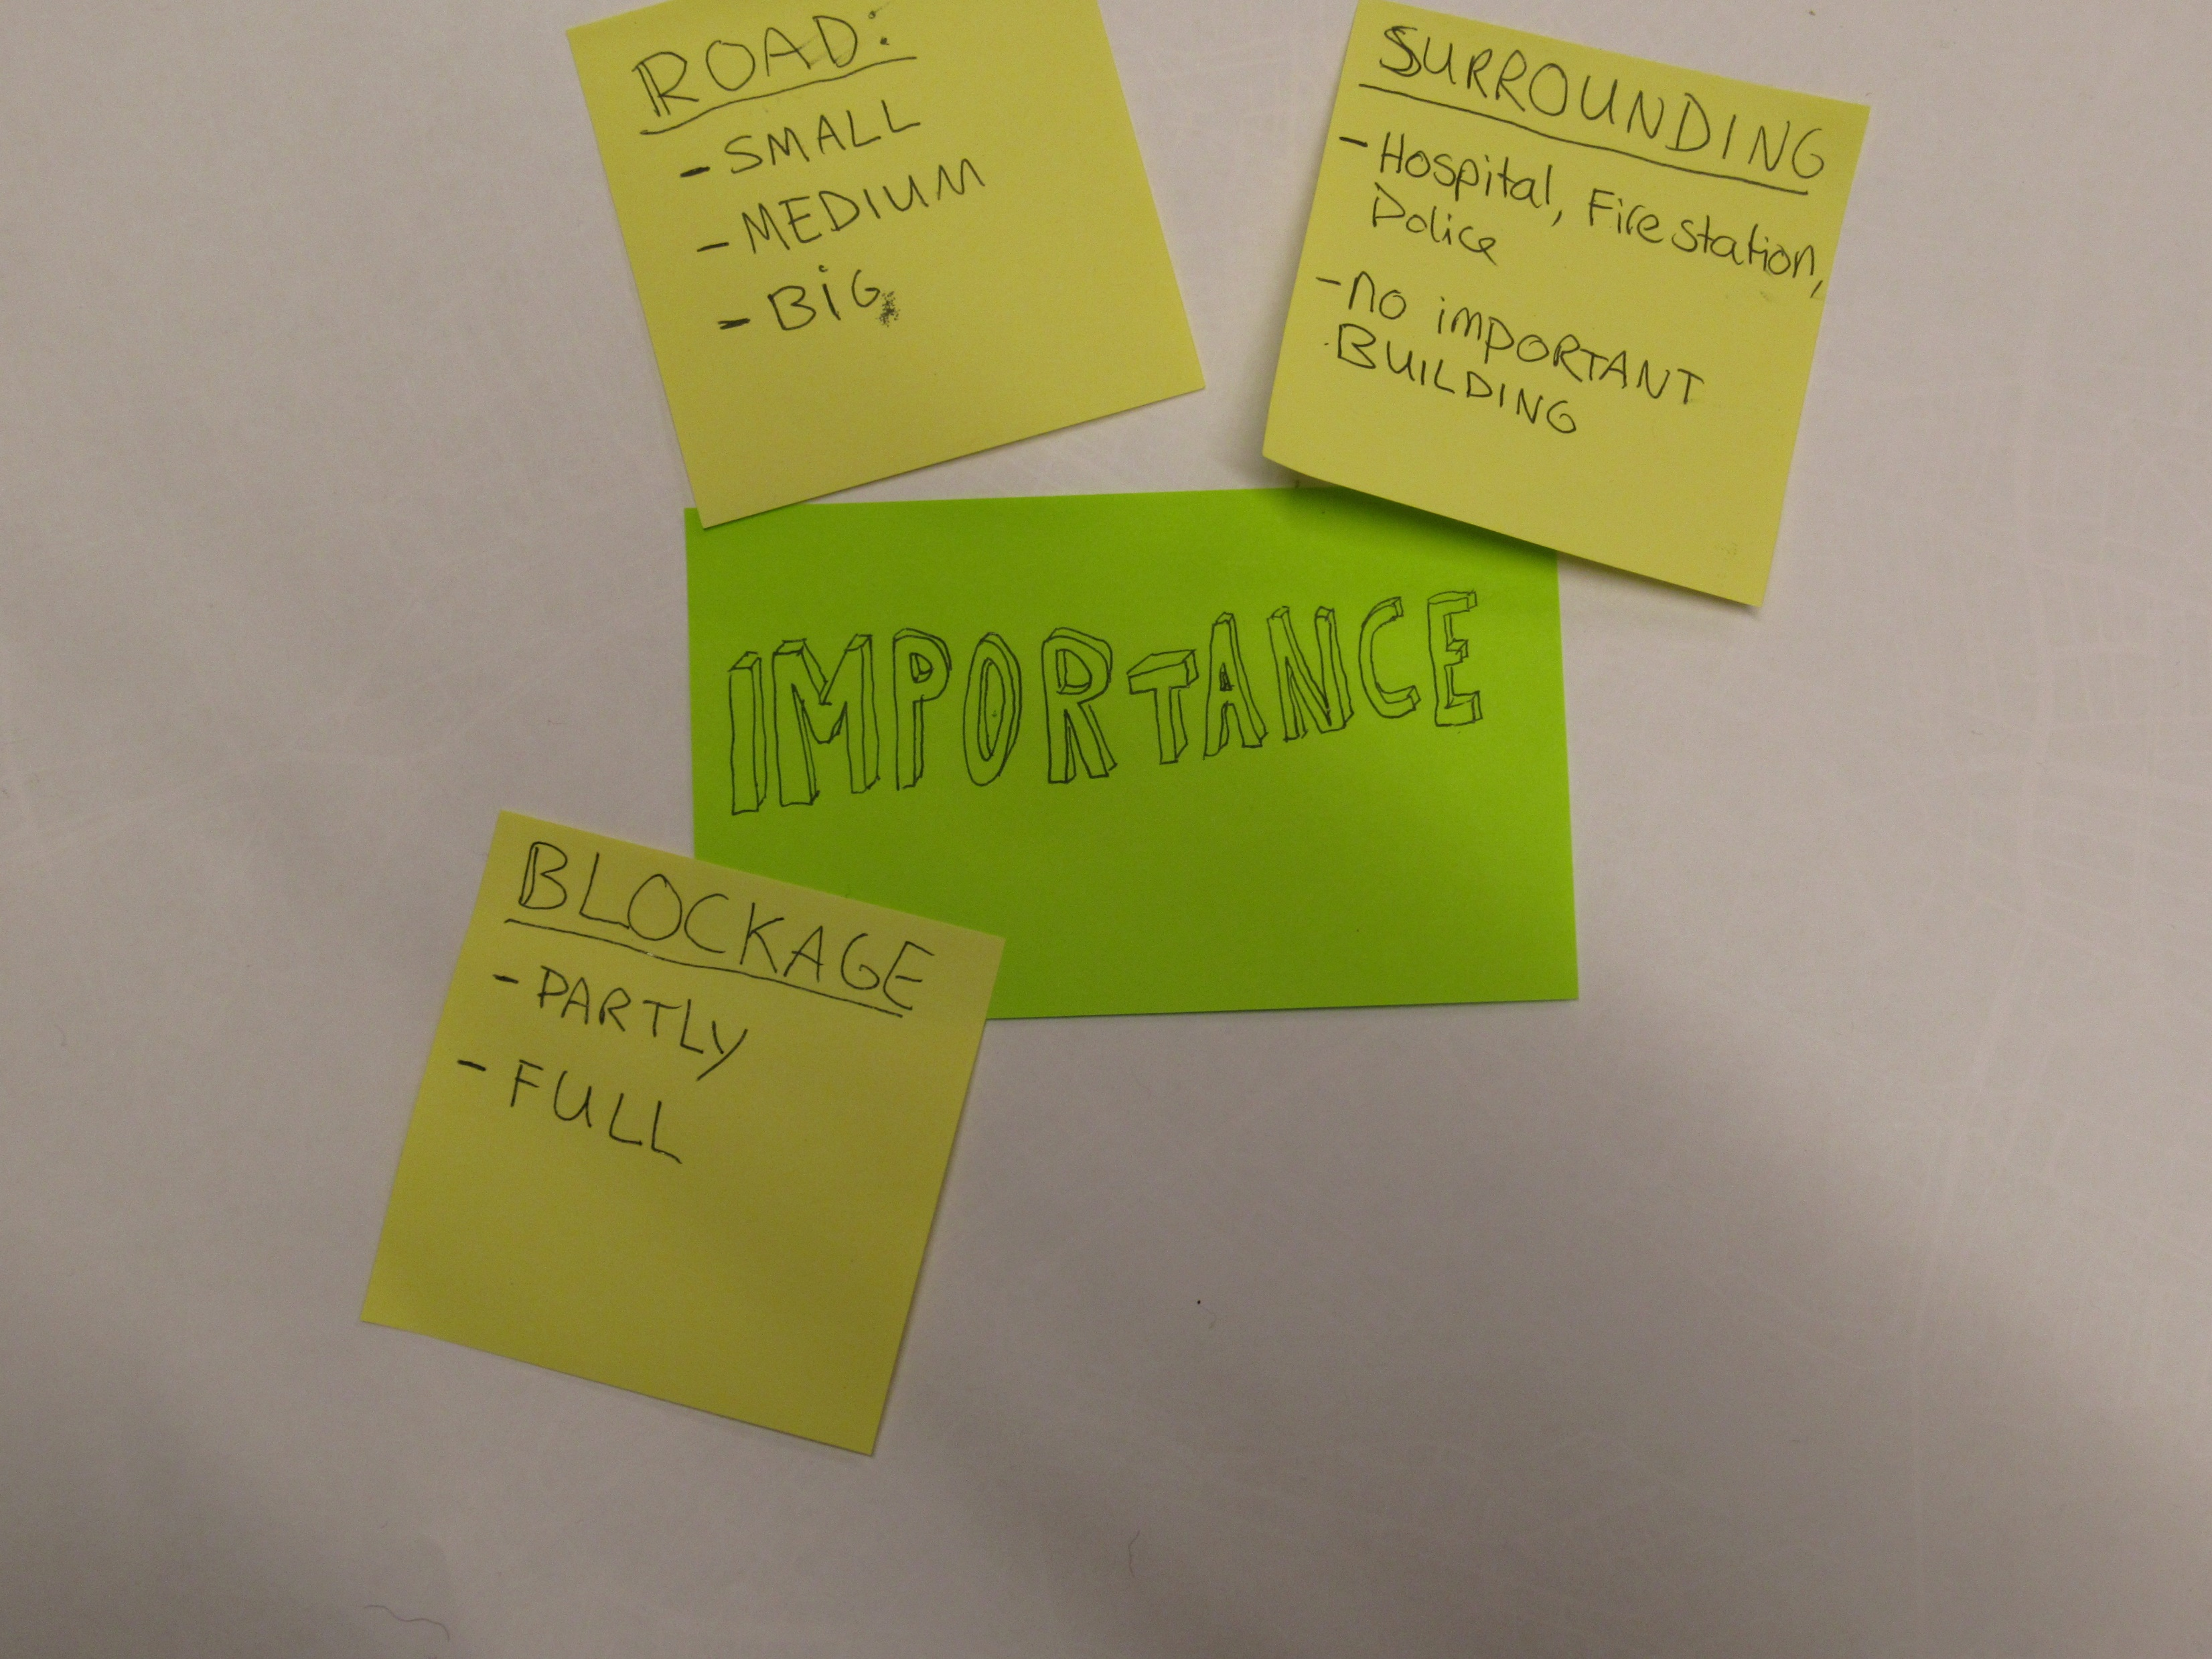 ROAD:
- SMALL
- MEDIUM
- BiG
SURROUNDING
- Hospital, Fire station,
Police
- no imPORTANT
BUILDING
IMPORTANCE
BLOCKAGE
- PARTLY
- FULL